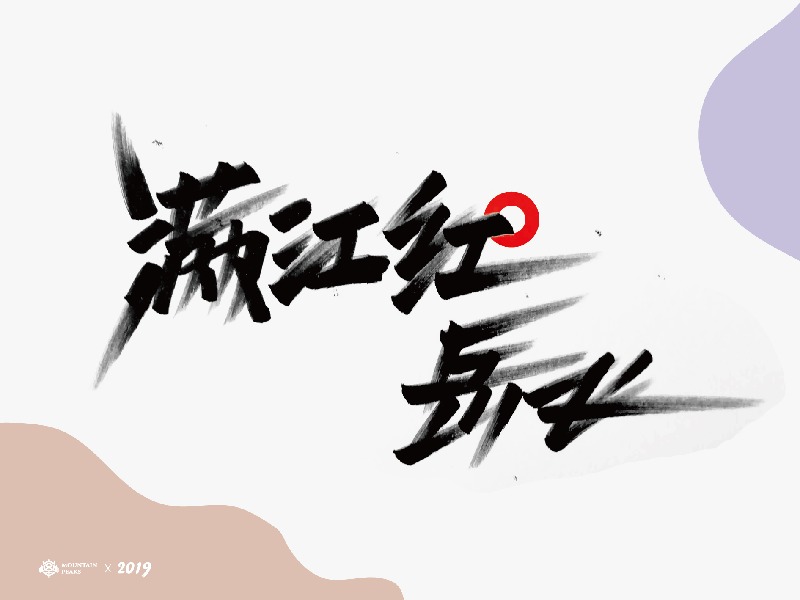 满江红
岳飞
MOUNTAIN
PEAKS
X 2019